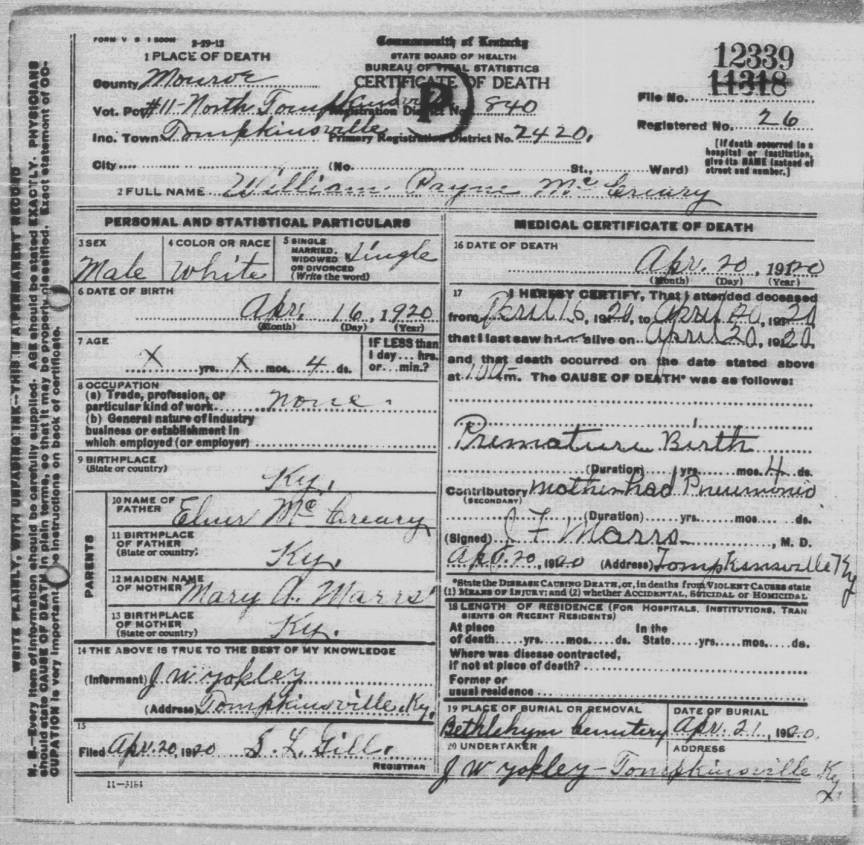 FORM V. S. 1 500M 3-29-12
Commonwealth of Kentucky
STATE BOARD OF HEALTH
BUREAU OF VITAL STATISTICS
CERTIFICATE OF DEATH
12339
11318
File No.
Registered No. 26
[If death occurred in a hospital or institution, give its NAME instead of street and number.]
1 PLACE OF DEATH
County Monroe
Vot. Pct #11-North Tompkinsville Registration District No. 840
P
Inc. Town Tompkinsville Primary Registration District No. 2420.
City (No. St., Ward)
2 FULL NAME William Payne McCreary
PERSONAL AND STATISTICAL PARTICULARS
3 SEX Male
4 COLOR OR RACE White
5 SINGLE MARRIED, WIDOWED OR DIVORCED (Write the word) Single
6 DATE OF BIRTH
Apr. 16, 1920
(Month) (Day) (Year)
7 AGE
X yrs. X mos. 4 ds.
IF LESS than 1 day... hrs. or... min.?
8 OCCUPATION
(a) Trade, profession, or particular kind of work none.
(b) General nature of industry
business or establishment in
which employed (or employer)
9 BIRTHPLACE
(State or country) Ky.
PARENTS
10 NAME OF FATHER Elmer McCreary
11 BIRTHPLACE OF FATHER (State or country) Ky.
12 MAIDEN NAME OF MOTHER Mary A. Marrs
13 BIRTHPLACE OF MOTHER (State or country) Ky.
14 THE ABOVE IS TRUE TO THE BEST OF MY KNOWLEDGE
(Informant) J W Yokley
(Address) Tompkinsville Ky.
15
Filed Apr. 20, 1920 S. L. Gill.
REGISTRAR
11-3184
MEDICAL CERTIFICATE OF DEATH
16 DATE OF DEATH
Apr. 20, 1920
(Month) (Day) (Year)
17 I HEREBY CERTIFY, That I attended deceased
from April 16, 1920, to April 20, 1920,
that I last saw him alive on April 20, 1920,
and that death occurred on the date stated above
at m. The CAUSE OF DEATH* was as follows:
Premature Birth
(Duration) yrs. mos. 4 ds.
Contributory (SECONDARY) mother had Pneumonia
(Duration) yrs. mos. ds.
(Signed) J F Marrs, M. D.
Apr. 20, 1920 (Address) Tompkinsville Ky
*State the DISEASE CAUSING DEATH, or, in deaths from VIOLENT CAUSES state
(1) MEANS OF INJURY; and (2) whether ACCIDENTAL, SUICIDAL or HOMICIDAL
18 LENGTH OF RESIDENCE (FOR HOSPITALS, INSTITUTIONS, TRANSIENTS OR RECENT RESIDENTS)
At place of death yrs. mos. ds. In the State yrs. mos. ds.
Where was disease contracted,
if not at place of death?
Former or
usual residence
19 PLACE OF BURIAL OR REMOVAL Bethlehym Cemetery
DATE OF BURIAL Apr. 21, 1920.
20 UNDERTAKER J W Yokley-
ADDRESS Tompkinsville Ky.
WRITE PLAINLY, WITH UNFADING INK—THIS IS A PERMANENT RECORD
N. B.—Every item of information should be carefully supplied. AGE should be stated EXACTLY. PHYSICIANS
should state CAUSE OF DEATH in plain terms, so that it may be properly classified. Exact statement of OC-
CUPATION is very important. See instructions on back of certificate.